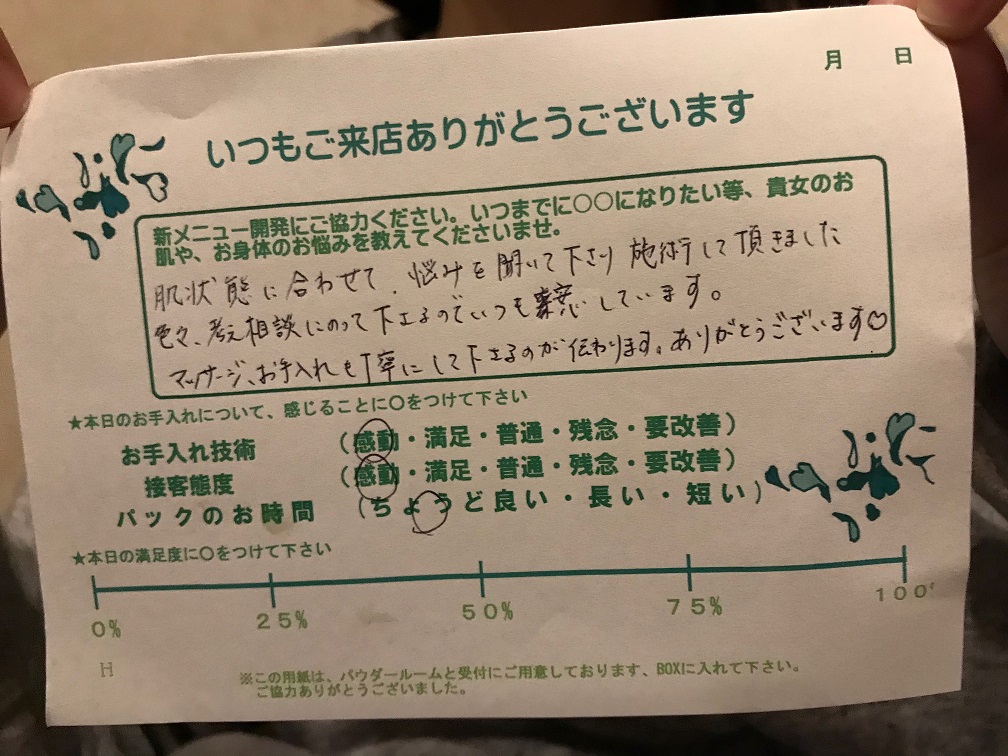 月 日
いつもご来店ありがとうございます
新メニュー開発にご協力ください。いつまでに○○になりたい等、貴女のお
肌や、お身体のお悩みを教えてくださいませ。
肌状態に合わせて、悩みを聞いて下さり施術して頂きました
色々、考え相談にのって下さるのでいつも感しています。
マッサージ、お手入れも丁寧にして下さるのが伝わります。ありがとうございます♡
★本日のお手入れについて、感じることに○をつけて下さい
お手入れ技術 (感動・満足・普通・残念・要改善)
接客態度 (感動・満足・普通・残念・要改善)
パックのお時間 (ちょうど良い・長い・短い)
★本日の満足度に○をつけて下さい
0% 25% 50% 75% 100%
H
※この用紙は、パウダールームと受付にご用意しております、BOXに入れて下さい。
ご協力ありがとうございました。